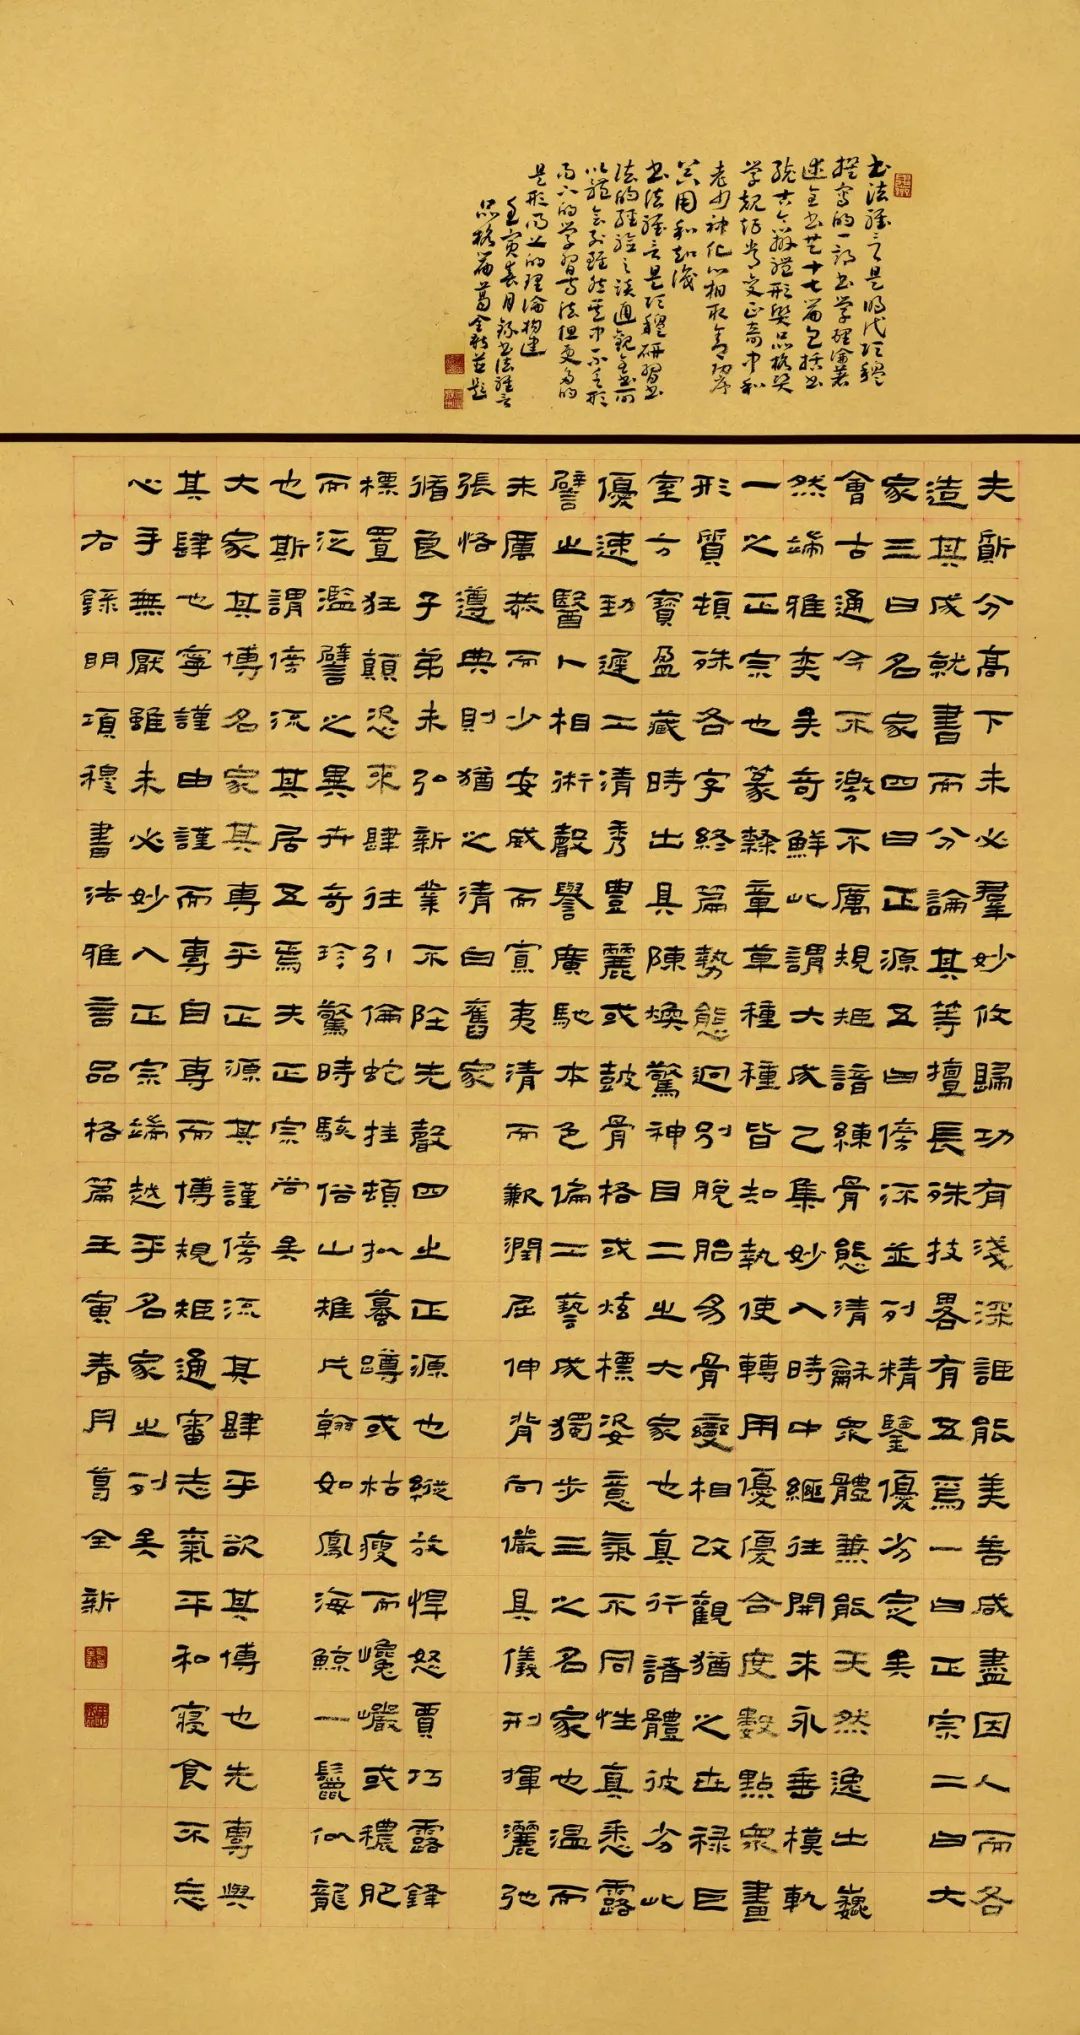 书法雅言是明代项穆
撰写的一部书学理论著
述全书共十七篇包括书
统古今辨体形质品格资
学规矩常变正奇中和
老少神化心相取舍功序
器用和知识
书法雅言是项穆研习书
法的经验之谈通观全书所
以体会到虽然其中不乏形
而下的学习方法但更多的
是形而上的理论构建
壬寅春月录书法雅言
品格篇葛全新并题
夫質分高下未必羣妙攸歸功有淺深詎能美善咸盡因人而各
造其成就書而分論其等擅長殊技畧有五焉一曰正宗二曰大
家三曰名家四曰正源五曰傍流並列精鑒優劣定矣
會古通今不激不厲規矩諳練骨態清龢衆體兼能天然逸出巍
然端雅奕矣奇鮮此謂大成已集妙入時中繼往開來永垂模軌
一之正宗也篆隸章草種種皆知執使轉用優優合度數點衆畫
形質頓殊各字終篇勢態迥別脫胎易骨變相改觀猶之世祿巨
室方寶盈藏時出具陳煥驚神目二之大家也真行諸體彼劣此
優速勁遲工清秀豐麗或鼓骨格或炫標姿意氣不同性真悉露
譬之醫卜相術聲譽廣馳本色偏工藝成獨步三之名家也温而
未厲恭而少安威而寡夷清而歉潤屈伸背向儼具儀刑揮灑弛
張恪遵典則猶之清白舊家
循良子弟未弘新業不隕先聲四之正源也縱放悍怒賈巧露鋒
標置狂顛恣來肆往引倫蛇挂頓擬蟇蹲或枯瘦而巉巖或穠肥
而泛濫譬之異卉奇珍驚時駭俗山雉片翰如鳳海鯨一鬣似龍
也斯謂傍流其居五焉夫正宗尚矣
大家其博名家其專乎正源其謹傍流其肆乎欲其博也先專與
其肆也寧謹由謹而專自專而博規矩通審志氣平和寢食不忘
心手無厭雖未必妙入正宗端越乎名家之列矣
右錄明項穆書法雅言品格篇壬寅春月葛全新